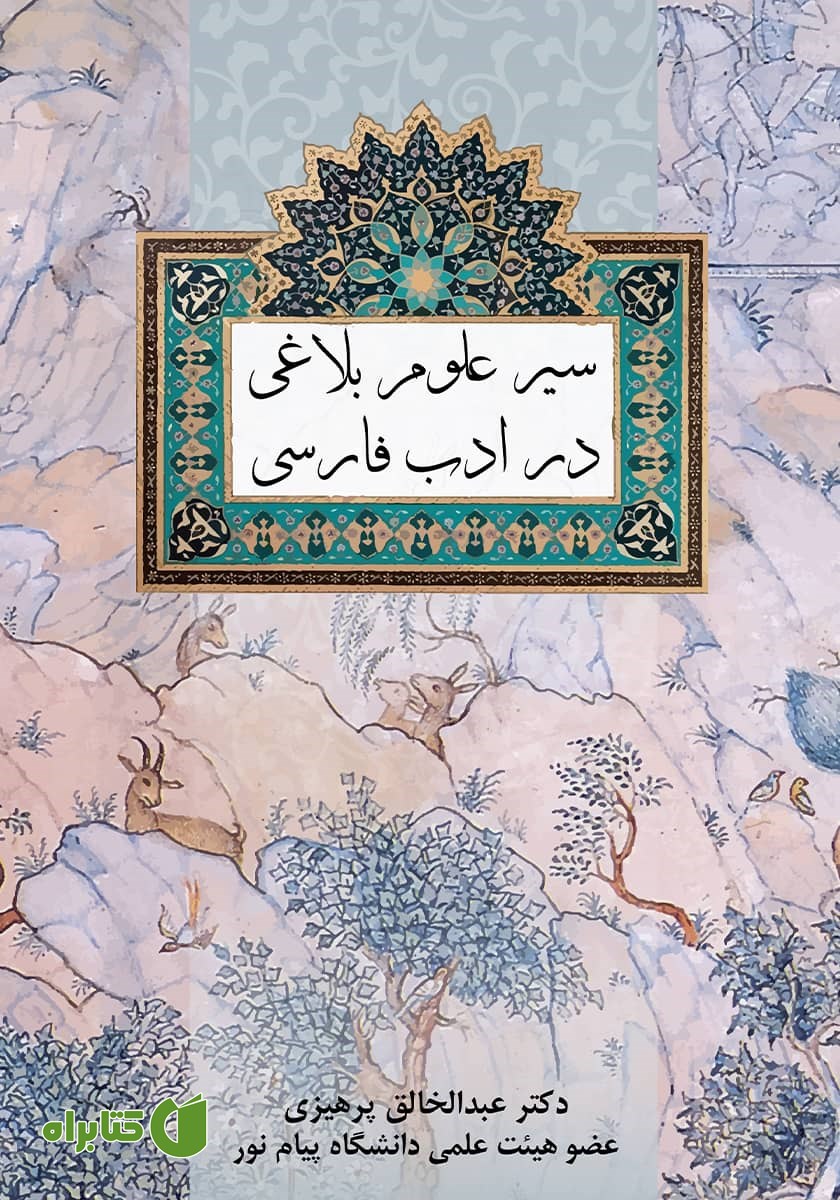 سیر علوم بلاغی
در ادب فارسی
دکتر عبدالخالق پرهیزی
عضو هیئت علمی دانشگاه پیام نور
کتابراه